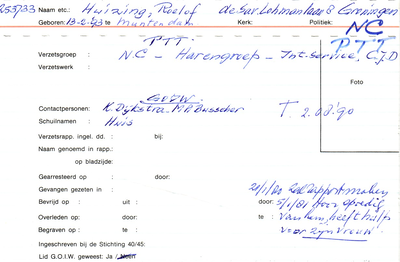 255733 Naam etc.: Huizing, Roelof de Sav. Lohmanlaan 8 Groningen
Geboren: 13-2-'43 te Muntendam Kerk: Politiek: NC
PTT PTT
Verzetsgroep : NC - Harengroep - Int. Service, C.J.D
Verzetswerk :
Foto
GOIW
Contactpersonen: K. Dijkstra. MA Busscher T. 2.08.'90
Schuilnaam : Huis
Verzetsrapp. ingel. dd. : bij:
Naam genoemd in rapp.:
op bladzijde:
Gearresteerd op : door:
Gevangen gezeten in : 20/1/80 zal rapport maken
Bevrijd op : uit : door: 5/1/81
Overleden op : door: te : van hem, heeft hulp
Begraven op : te : voor zijn vrouw.
Ingeschreven bij de Stichting 40/45:
Lid G.O.I.W. geweest: Ja / Neen